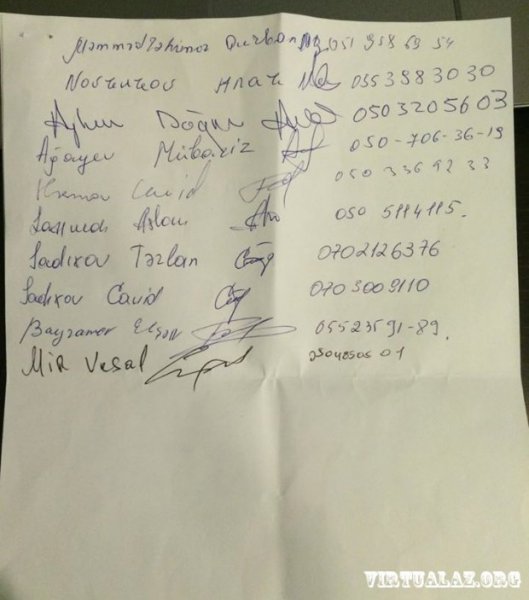 Məmmədrəhimov Qurban 051 958 69 54
055 388 30 30
Doğru 050 320 56 03
Ağayev Mübariz 050-706-36-19
Cavid 050 336 92 33
Aslan 050 5114115.
Sadıxov Tərlan 0702126376
Sadıxov Cavid 0703009110
Bayramov Elşən 05523591-89.
Mir Vüsal
VIRTUALAZ.ORG